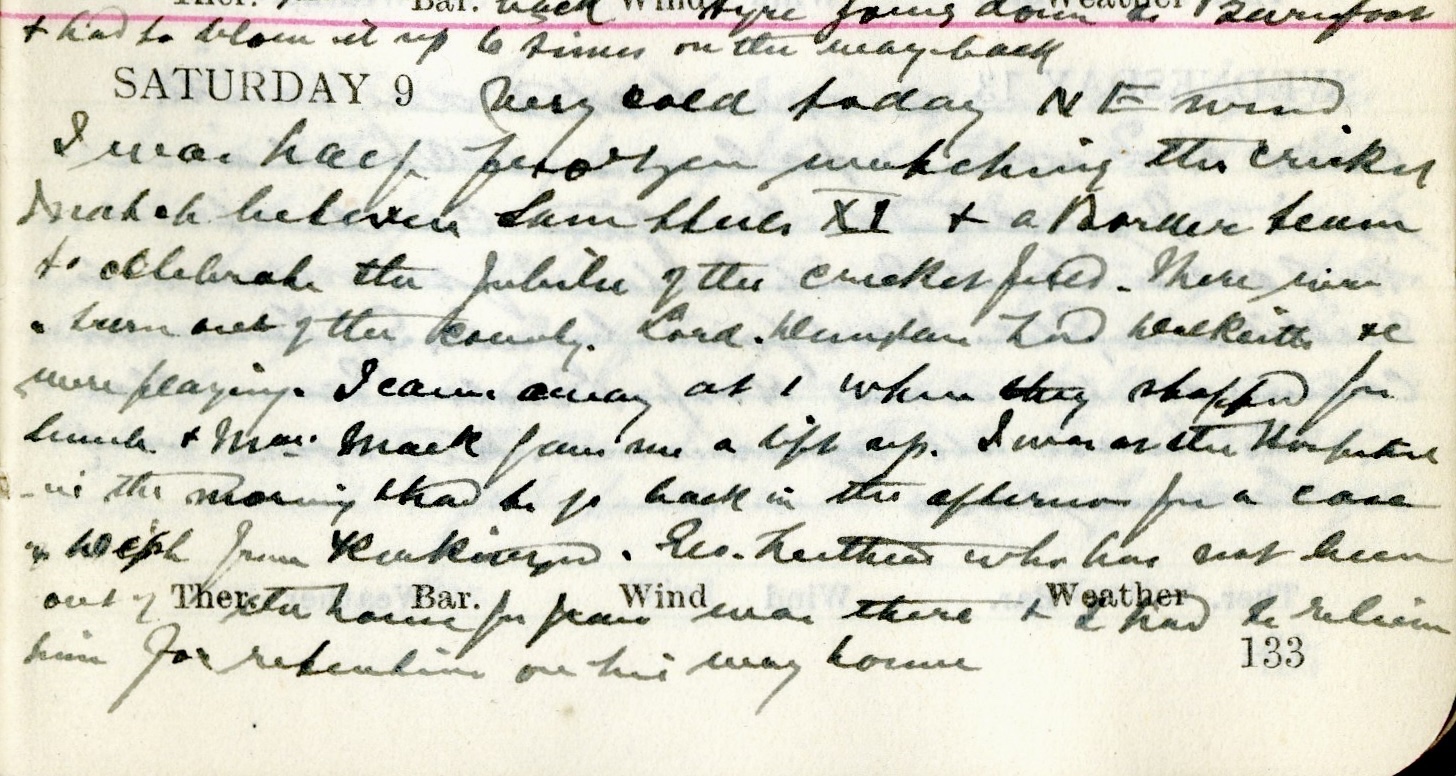 Ther. Bar. back Wind tyre going down to Weather Burnfoot
& had to blow it up 6 times on the way back
SATURDAY 9 Very cold today N E wind
I was half frozen watching the cricket
match between Sam XI & a Border team
to celebrate the Jubilee of the cricket field. There was
a turn out of the county. Lord Dunglass Lord Dalkeith &c
were playing. I came away at 1 when they stopped for
lunch & Mrs. Mack gave me a lift up. I was at the Hospital
in the morning & had to go back in the afternoon for a case
from . Geo. who has not been
out of Ther. the Bar. house for years Wind was there Weather & I had to relieve
him for retention on his way home 133